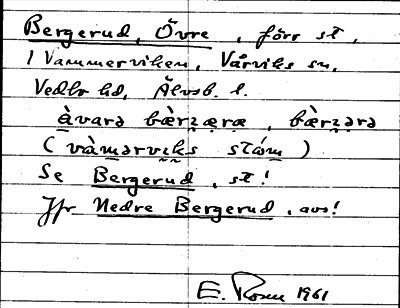 Bergerud, Övre, förr st,
i Vammerviken, Vårviks sn,
Vedbo hd, Älvsb. l.
à̱varə bàrz̤æræ, bàrz̤ərə
(vàm̱ərvɪks stám̱)
Se Bergerud, st!
Jfr Nedre Bergerud, avs!
E. Rosen 1961